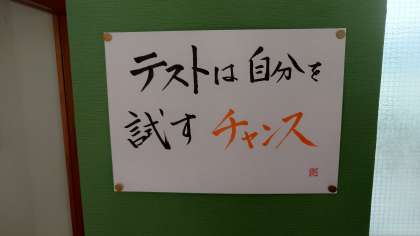 テストは自分を
試すチャンス